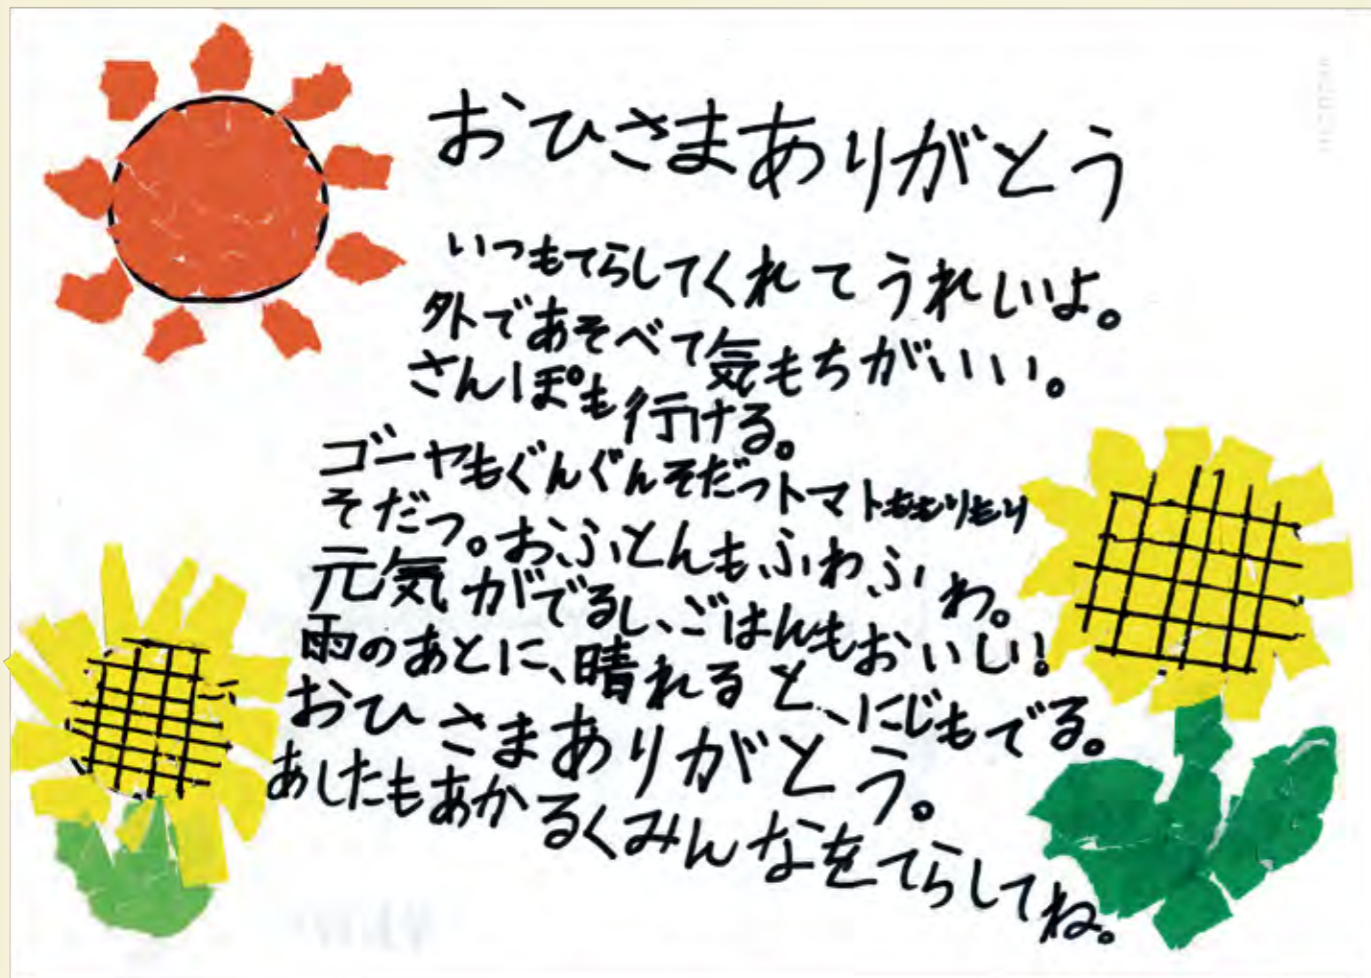 おひさまありがとう
いつもてらしてくれてうれしいよ。
外であそべて気もちがいいい。
さんぽも行ける。
ゴーヤもぐんぐんそだつトマトももりもり
そだつ。おふとんもふわふわ。
元気がでるし、ごはんもおいしい!
雨のあとに、晴れると、にじもでる。
おひさまありがとう。
あしたもあかるくみんなをてらしてね。